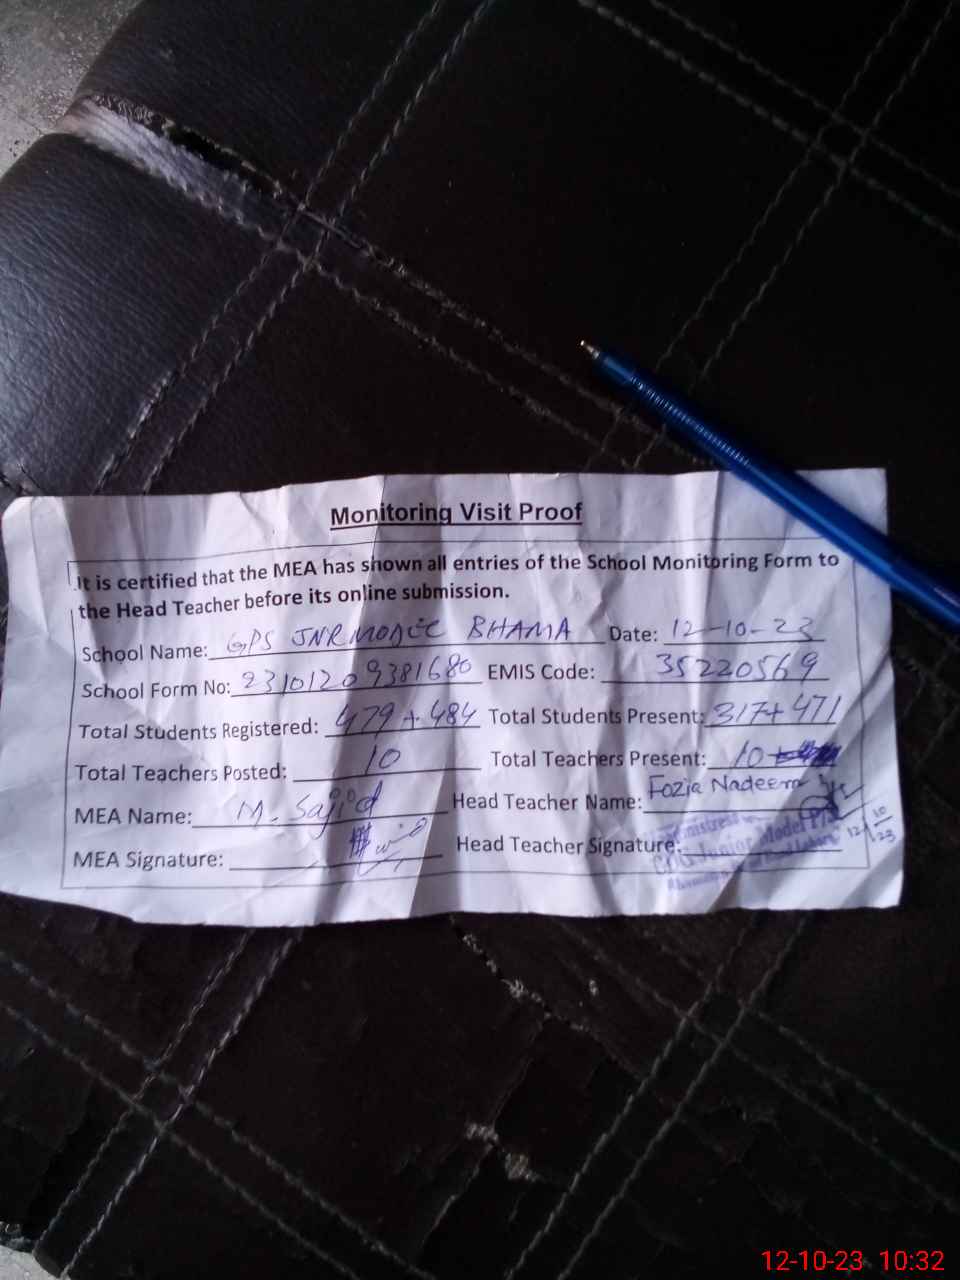 Monitoring Visit Proof
It is certified that the MEA has shown all entries of the School Monitoring Form to
the Head Teacher before its online submission.
School Name: GPS JNR MODEL BHAMA Date: 12-10-23
School Form No: 23101209381680 EMIS Code: 35220569
Total Students Registered: 479+484 Total Students Present: 317+471
Total Teachers Posted: 10 Total Teachers Present: 10
MEA Name: M. Sajid Head Teacher Name: Fozia Nadeem
MEA Signature: Head Teacher Signature:
Junior Model P/S
12/10/23
12-10-23 10:32